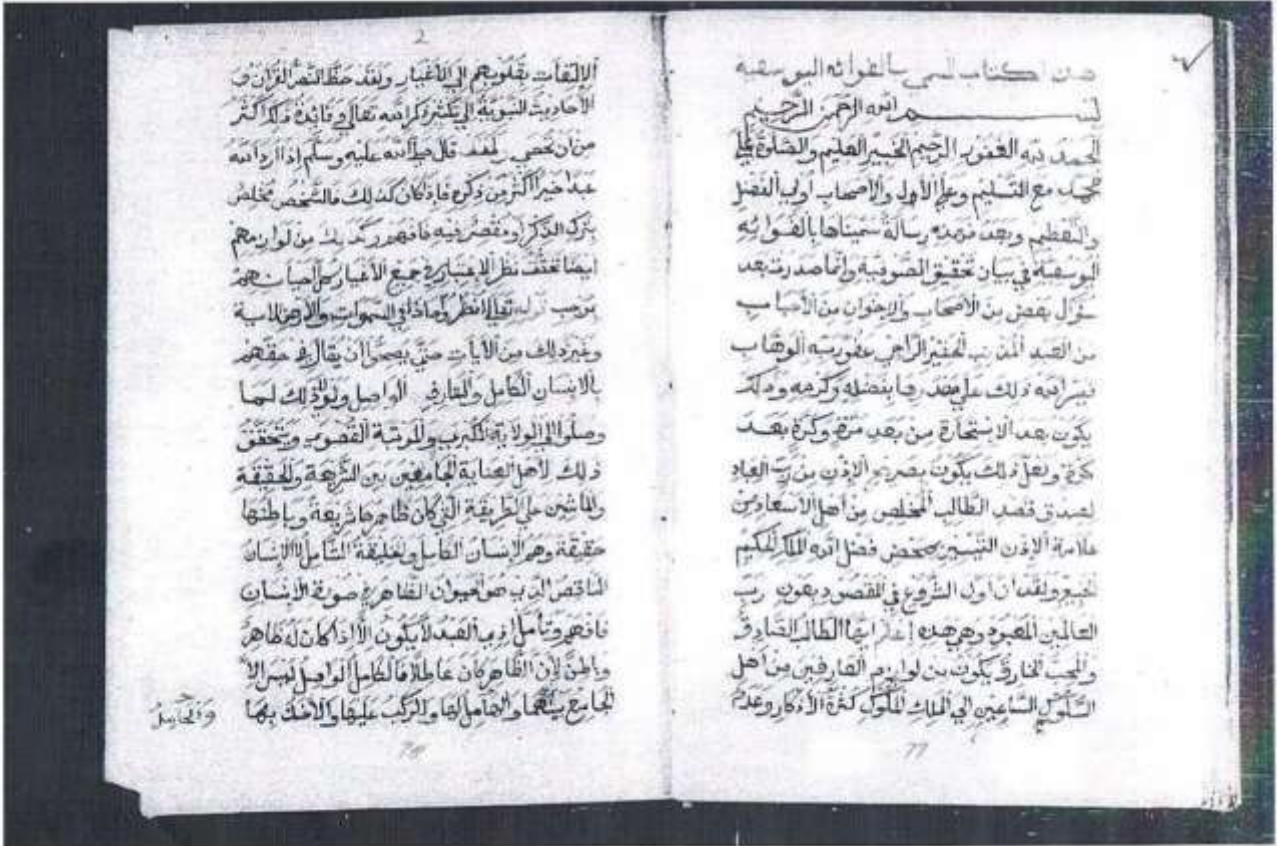 هذا الكتاب المسمى بالفوائد اليوسفية
بسم الله الرحمن الرحيم
الحمد لله الغفور الرحيم الخبير العليم والصلوة على
محمد مع التسليم وعلى الأول والأصحاب أولي الفضل
والتعظيم وبعد فهذه رسالة سميناها بالفوائد
اليوسفية في بيان تحقيق الصوفية وإنما صدرت بعد
سؤال بعض من الأصحاب والإخوان من الأحباب
من العبد المذنب الحقير الراجي عفو ربه الوهاب
فيسر الله ذلك على قدر بفضله وكرمه وذلك
يكون بعد الاستخارة من بعد مرة وكرة بعد
كرة ولعل ذلك يكون بصريح الإذن من رب العباد
لصدق قصد الطالب المخلص من أهل الإسعاد من
علامة الإذن التيسير بمحض فضل الله الملك الحكيم
ولقد آن أول الشروع في المقصود بعون رب
العالمين المعبود وهي هذه إعلم أيها الطالب الصادق
والمحب يكون من لوازم العارفين من أهل
السلوك الساعين إلى الملك الملوك كثرة الأذكار وعدم
2
الالتفات بقلوبهم إلى الأغيار ولقد حظ النص القرآن و
الأحاديث النبوية إلى تكثر ذكر الله تعالى وفائدة ذلك أكثر
من أن تحصى ولقد قال صلى الله عليه وسلم إذا أراد الله
عبدا خيرا أكثر من ذكره فإذ كان كذلك فالشخص مخلص
بترك الذكر أو مقصر فيه فافهم وكذلك من لوازمهم
أيضا نظر الإعتبار في جميع الأغيار كل أحيانهم
بموجب قوله تعالى انظر وماذا في السموات والأرض لآية
وغير ذلك من الآيات حتى يصحوا أن يقال في حقهم
بالإنسان الكامل والعارف الواصل ولولا ذلك لما
وصلوا إلى الولاية الكبرى والمرتبة القصوى ويتحقق
ذلك لأهل العناية الجامعين بين الشريعة والحقيقة
والماشين على الطريقة التي كان ظاهرها شريعة وباطنها
حقيقة وهم الإنسان الكامل والخليفة الشامل لا الإنسان
الناقص الذي هو الحيوان الظاهر في صورة الإنسان
فافهم وتأمل إذ العبد لا يكون إلا إذا كان له ظاهر
وباطن لأن الظاهر كان عاطلا فالكامل الواصل ليس إلا
الجامع بينهما والحامل لها والركب عليها والآخذ بها
والحامل
78
77